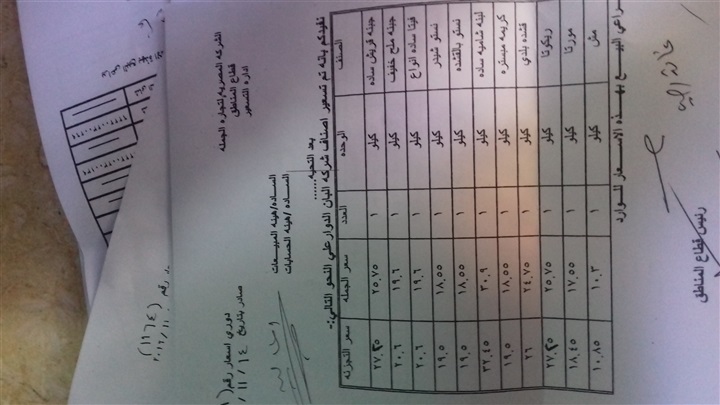 الشركه المصريه لتجاره الجمله
قطاع المناطق
اداره التسعير
دوري اسعار رقم(
صادر بتاريخ ١٤ / ١١ /
الساده/هيئه المبيعات
الساده /هيئه الحسابات
بعد التحيه......
نفيدكم بانه تم تسعير اصناف شركه البان الدوار علي النحو التالي:-
الصنف الوحده العدد سعر الجمله سعر التجزئه
جبنه قريش ساده كيلو ١ ٢٥.٧٥ ٢٧.٢٥
جبنه ملح خفيف كيلو ١ ١٩.٦ ٢٠.٦
فيتا ساده انواع كيلو ١ ١٩.٦ ٢٠.٦
نستو شيدر كيلو ١ ١٨.٥٥ ١٩.٥
نستو بالقشده كيلو ١ ١٨.٥٥ ١٩.٥
لبنه شاميه ساده كيلو ١ ٣٠.٩ ٣٢.٤٥
كريمه مبستره كيلو ١ ١٨.٥٥ ١٩.٥
قشده بلدي كيلو ١ ٢٤.٧٥ ٢٦
ريكوتا كيلو ١ ٢٥.٧٥ ٢٧.٢٥
مورتا كيلو ١ ١٧.٥٥ ١٨.٤٥
مش كيلو ١ ١٠.٣ ١٠.٨٥
راعي البيع بهذه الاسعار للوارد
رئيس قطاع المناطق
(١١٦٤)